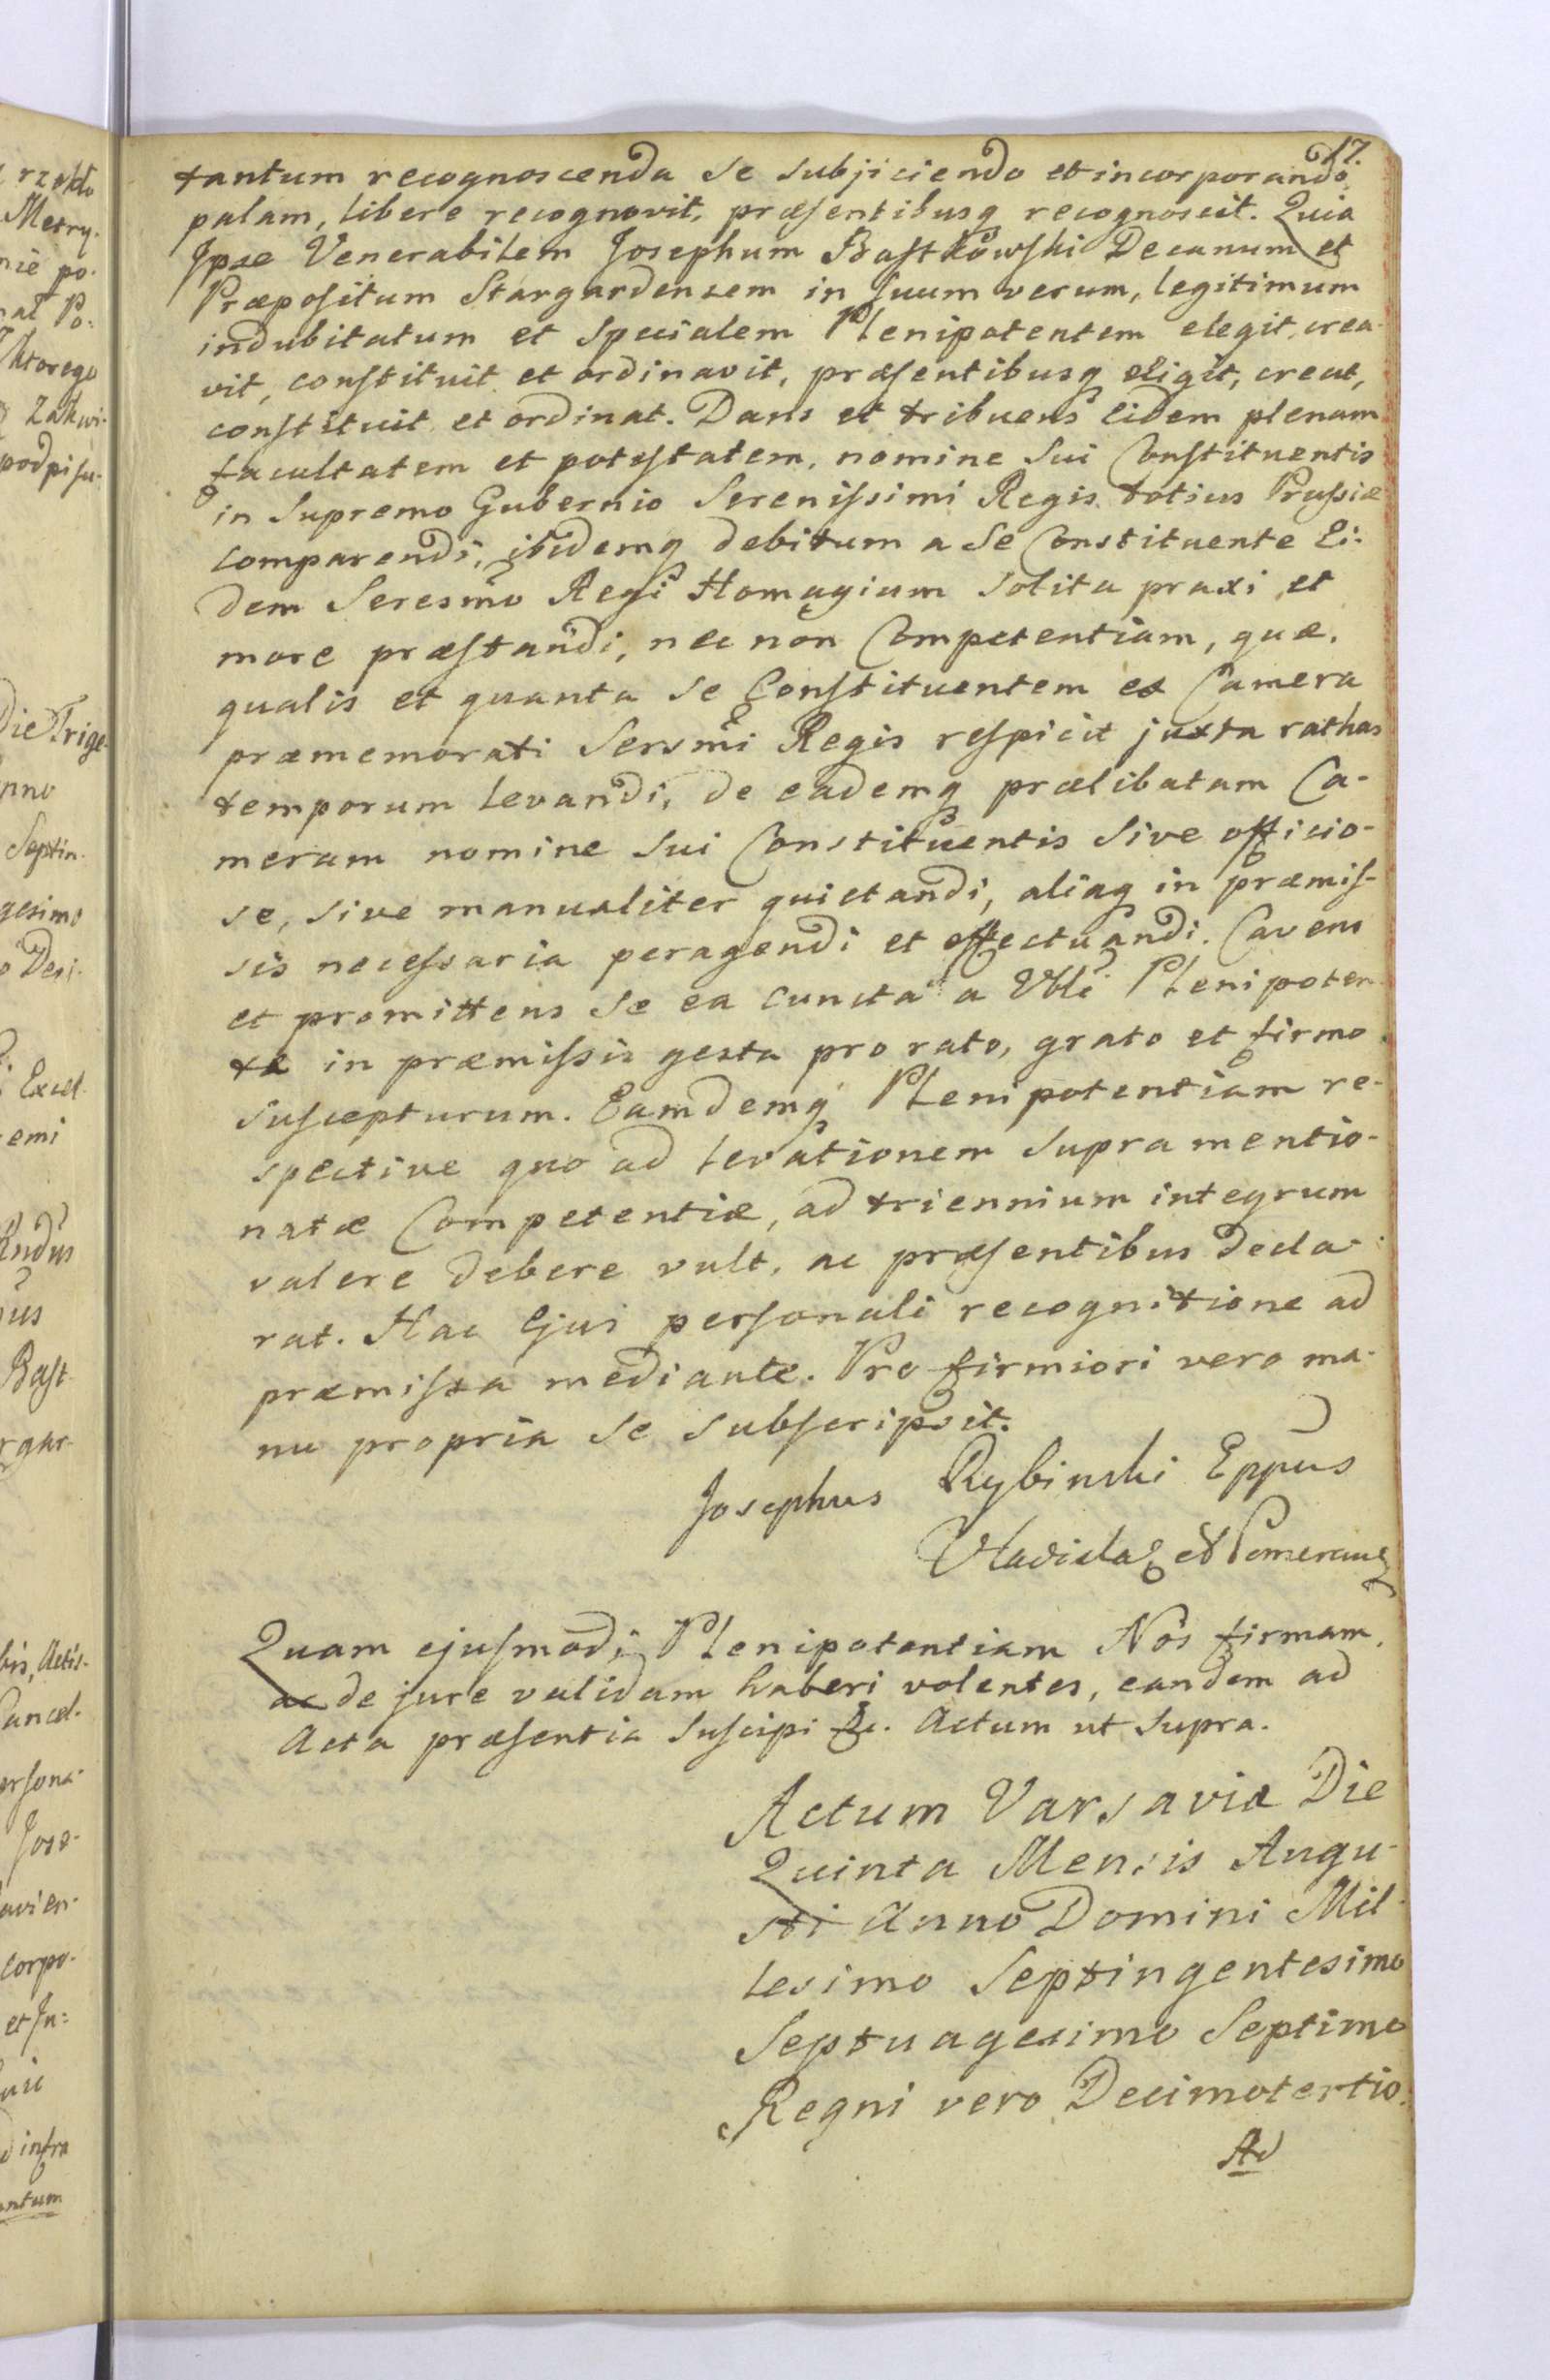 17.
tantum recognoscenda se subjiciendo et incorporando
palam, libere recognovit, præsentibusq recognoscit. Quia
Ipse Venerabilem Josephum Bastkowski Decanum et
Præpositum Stargardensem in suum verum, legitimum
indubitatum et specialem Plenipotentem elegit, crea-
vit, constituit et ordinavit, præsentibusq eligit, creat,
constituit et ordinat. Dans et tribuens Eidem plenam
facultatem et potestatem, nomine sui Constituentis
in Supremo Gubernio Serenissimi Regis totius Prussiæ
comparendi, ibidemq debitum a se Constituente Ei-
dem Seresmo Regi Homagium solita praxi et
more præstandi, nec non Competentiam, quæ,
qualis et quanta se Constituentem ex Camera
præmemorati Sersmi Regis respicit juxta rathas
temporum levandi, de eademq prælibatam Ca-
meram nomine sui Constituentis sive officio-
se, sive manualiter quietandi, aliaq in præmis-
sis necessaria peragendi et effectuandi. Cavens
et promittens se ea cuncta a Vbli Plenipoten
te in præmissis gesta pro rato, grato et firmo
suscepturum. Eamdemq Plenipotentiam re-
spective quo ad levationem supra mentio-
natæ Competentiæ, ad triennium integrum
valere debere vult, ac præsentibus decla-
rat. Hac Ejus personali recognitione ad
præmissa mediante. Pro firmiori vero ma-
nu propria se subscripsit.
Josephus Rybinski Eppus
Vladisla et Pomeran
Quam ejusmodi Plenipotentiam Nos firmam,
ac de jure validam haberi volentes, eandem ad
Acta præsentia suscipi &c. Actum ut supra.
Actum Varsaviæ Die
Quinta Mensis Augu-
sti Anno Domini Mil-
lesimo Septingentesimo
Septuagesimo Septimo
Regni vero Decimotertio.
Ad